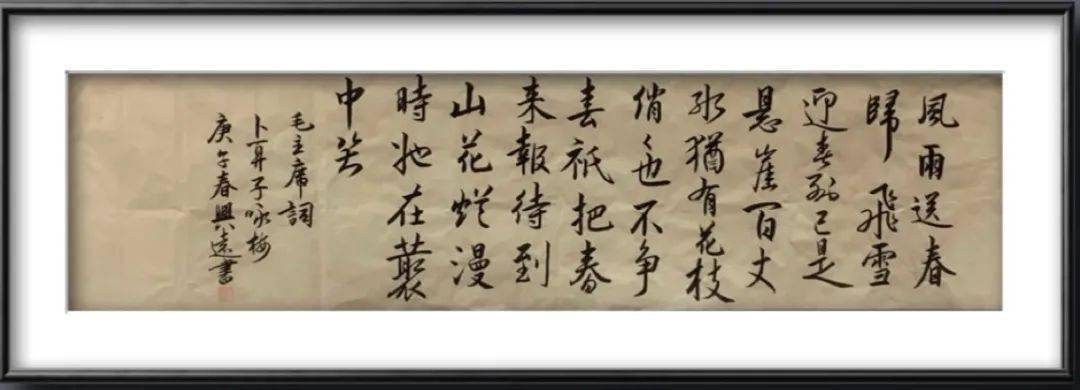 風雨送春
歸飛雪
迎春到已是
懸崖百丈
冰猶有花枝
俏也不争
春祇把春
来報待到
山花烂漫
時她在叢
中笑
毛主席詞
卜算子咏梅
庚午春興遠書